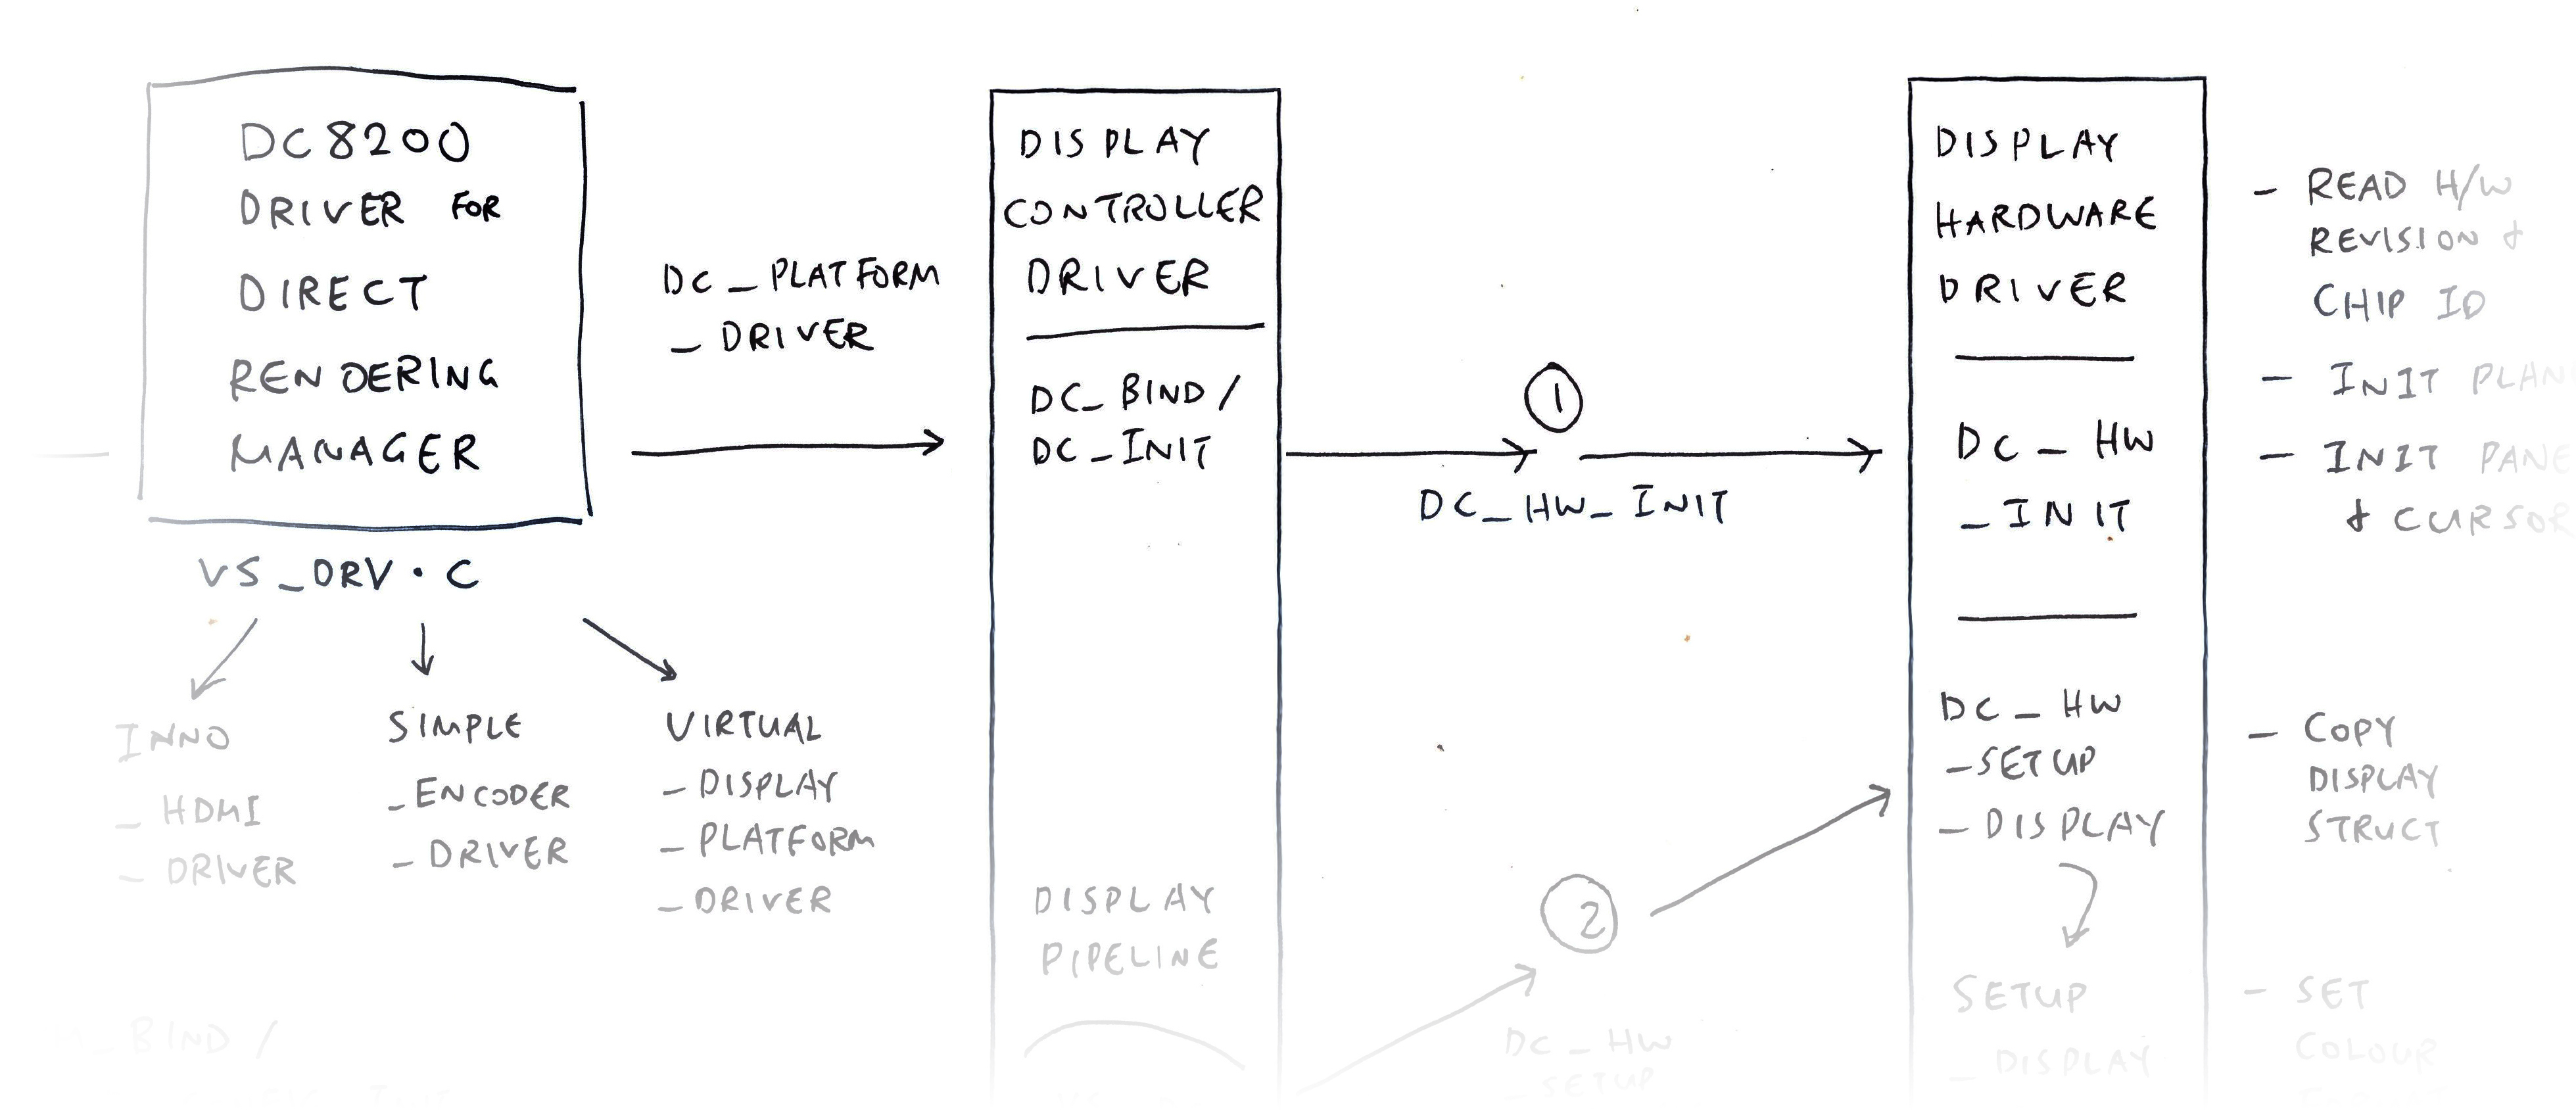 DC8200
DRIVER FOR
DIRECT
RENDERING
MANAGER
VS_DRV.C
INNO
_HDMI
_DRIVER
SIMPLE
_ENCODER
_DRIVER
VIRTUAL
_DISPLAY
_PLATFORM
_DRIVER
_BIND/
DC_PLATFORM
_DRIVER
DISPLAY
CONTROLLER
DRIVER
DC_BIND/
DC_INIT
DISPLAY
PIPELINE
1
DC_HW_INIT
2
DC_HW
_SETUP
DISPLAY
HARDWARE
DRIVER
DC_HW
_INIT
DC_HW
_SETUP
_DISPLAY
SETUP
_DISPLAY
- READ H/W
REVISION &
CHIP ID
- INIT PLAN
- INIT PANE
& CURSOR
- COPY
DISPLAY
STRUCT
- SET
COLOUR